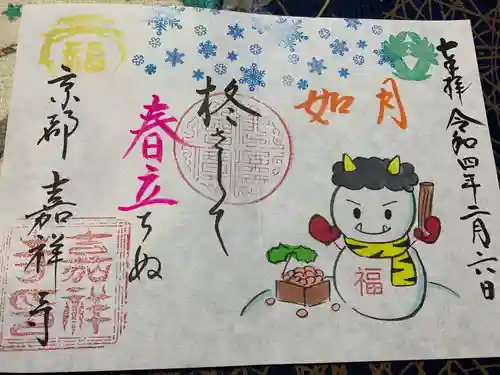 七種拝 令和四年二月六日
如月
柊さして
春立ちぬ
京都 嘉祥寺
福
福
嘉祥